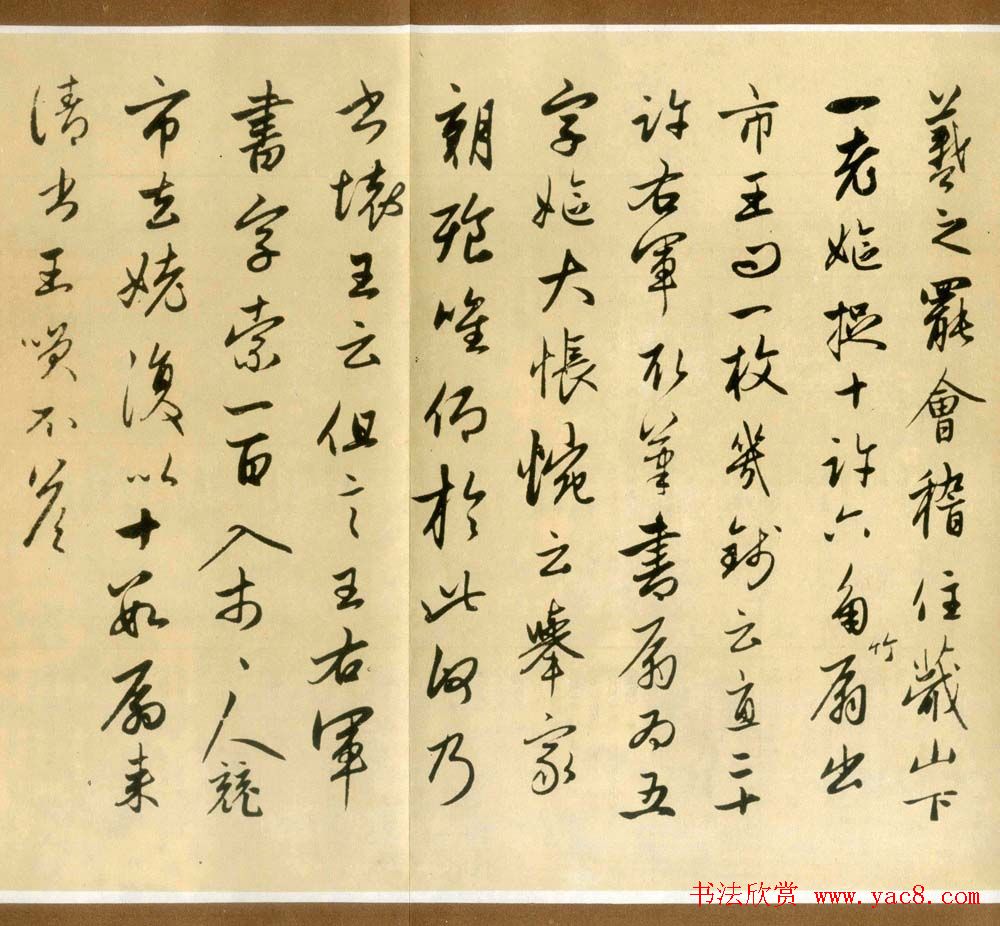 羲之罷會稽住蕺山下
一老嫗捉十許六角竹扇出
市王問一枚幾錢云直二十
許右軍取筆書扇為五
字嫗大悵惋云舉家
朝飡唯仰於此何乃
書壞王云但言王右軍
書字索一百入市〻人競
市去姥復以十數扇來
請書王咲不答
书法欣赏 www.yac8.com